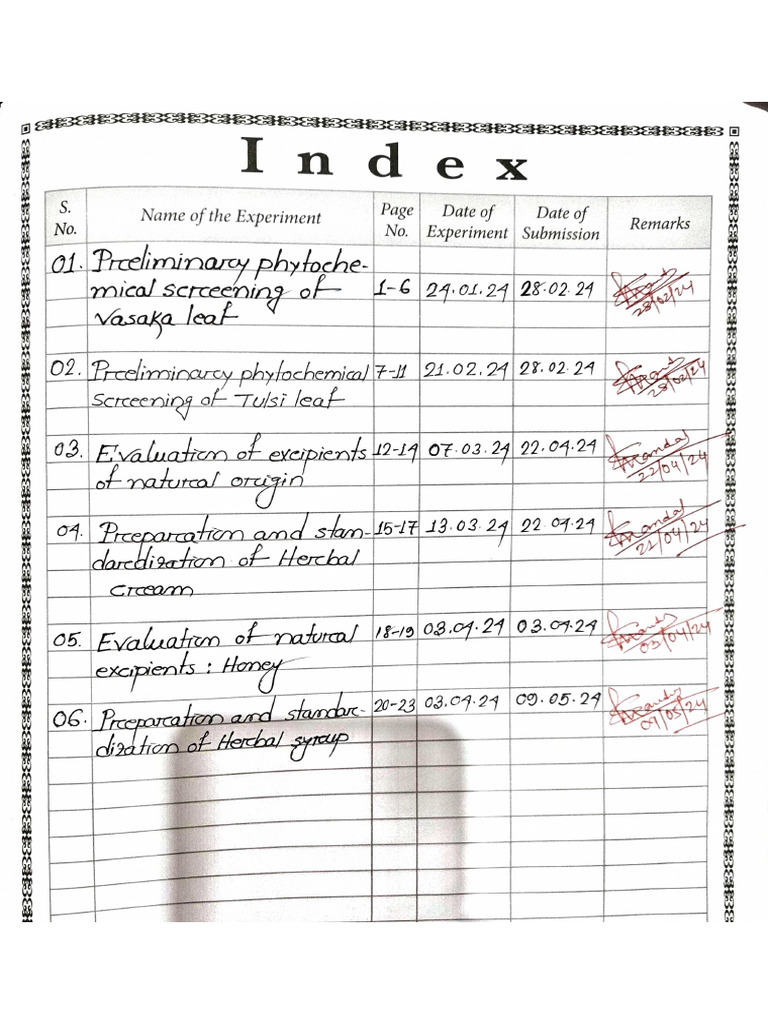 Index
S. No. Name of the Experiment Page No. Date of Experiment Date of Submission Remarks
01. Preliminary phytoche-
mical screening of 1-6 24.01.24 28.02.24 28/02/24
Vasaka leaf
02. Preliminary phytochemical 7-11 21.02.24 28.02.24 28/02/24
screening of Tulsi leaf
03. Evaluation of excipients 12-14 07.03.24 22.04.24 22/04/24
of natural origin
04. Preparation and stan- 15-17 13.03.24 22.04.24
dardization of Herbal
cream
05. Evaluation of natural 18-19 03.04.24 03.04.24 03/04/24
excipients : Honey
06. Preparation and standar- 20-23 03.04.24 09.05.24 09/05/24
dization of Herbal syrup